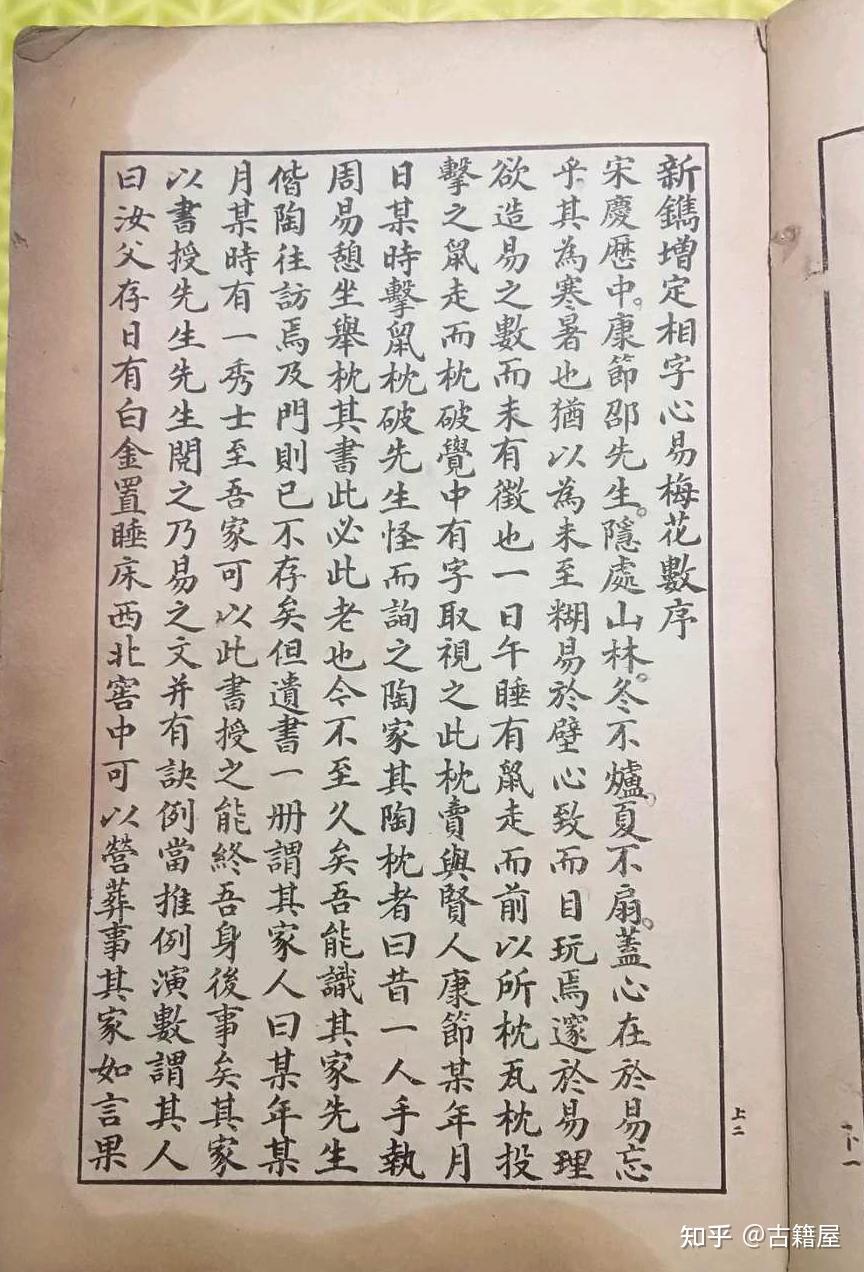 新鐫增定相字心易梅花數序
宋慶曆中。康節邵先生。隱處山林。冬不爐。夏不扇。蓋心在於易忘
乎其為寒暑也猶以為未至糊易於壁心致而目玩焉邃於易理
欲造易之數而未有徵也一日午睡有鼠走而前以所枕瓦枕投
擊之鼠走而枕破覺中有字取視之此枕賣與賢人康節某年月
日某時擊鼠枕破先生怪而詢之陶家其陶枕者曰昔一人手執
周易憩坐舉枕其書此必此老也今不至久矣吾能識其家先生
偕陶往訪焉及門則已不存矣但遺書一册謂其家人曰某年某
月某時有一秀士至吾家可以此書授之能終吾身後事矣其家
以書授先生先生閱之乃易之文并有訣例當推例演數謂其人
曰汝父存日有白金置睡床西北窖中可以營葬事其家如言果
上二
下一
知乎 @古籍屋